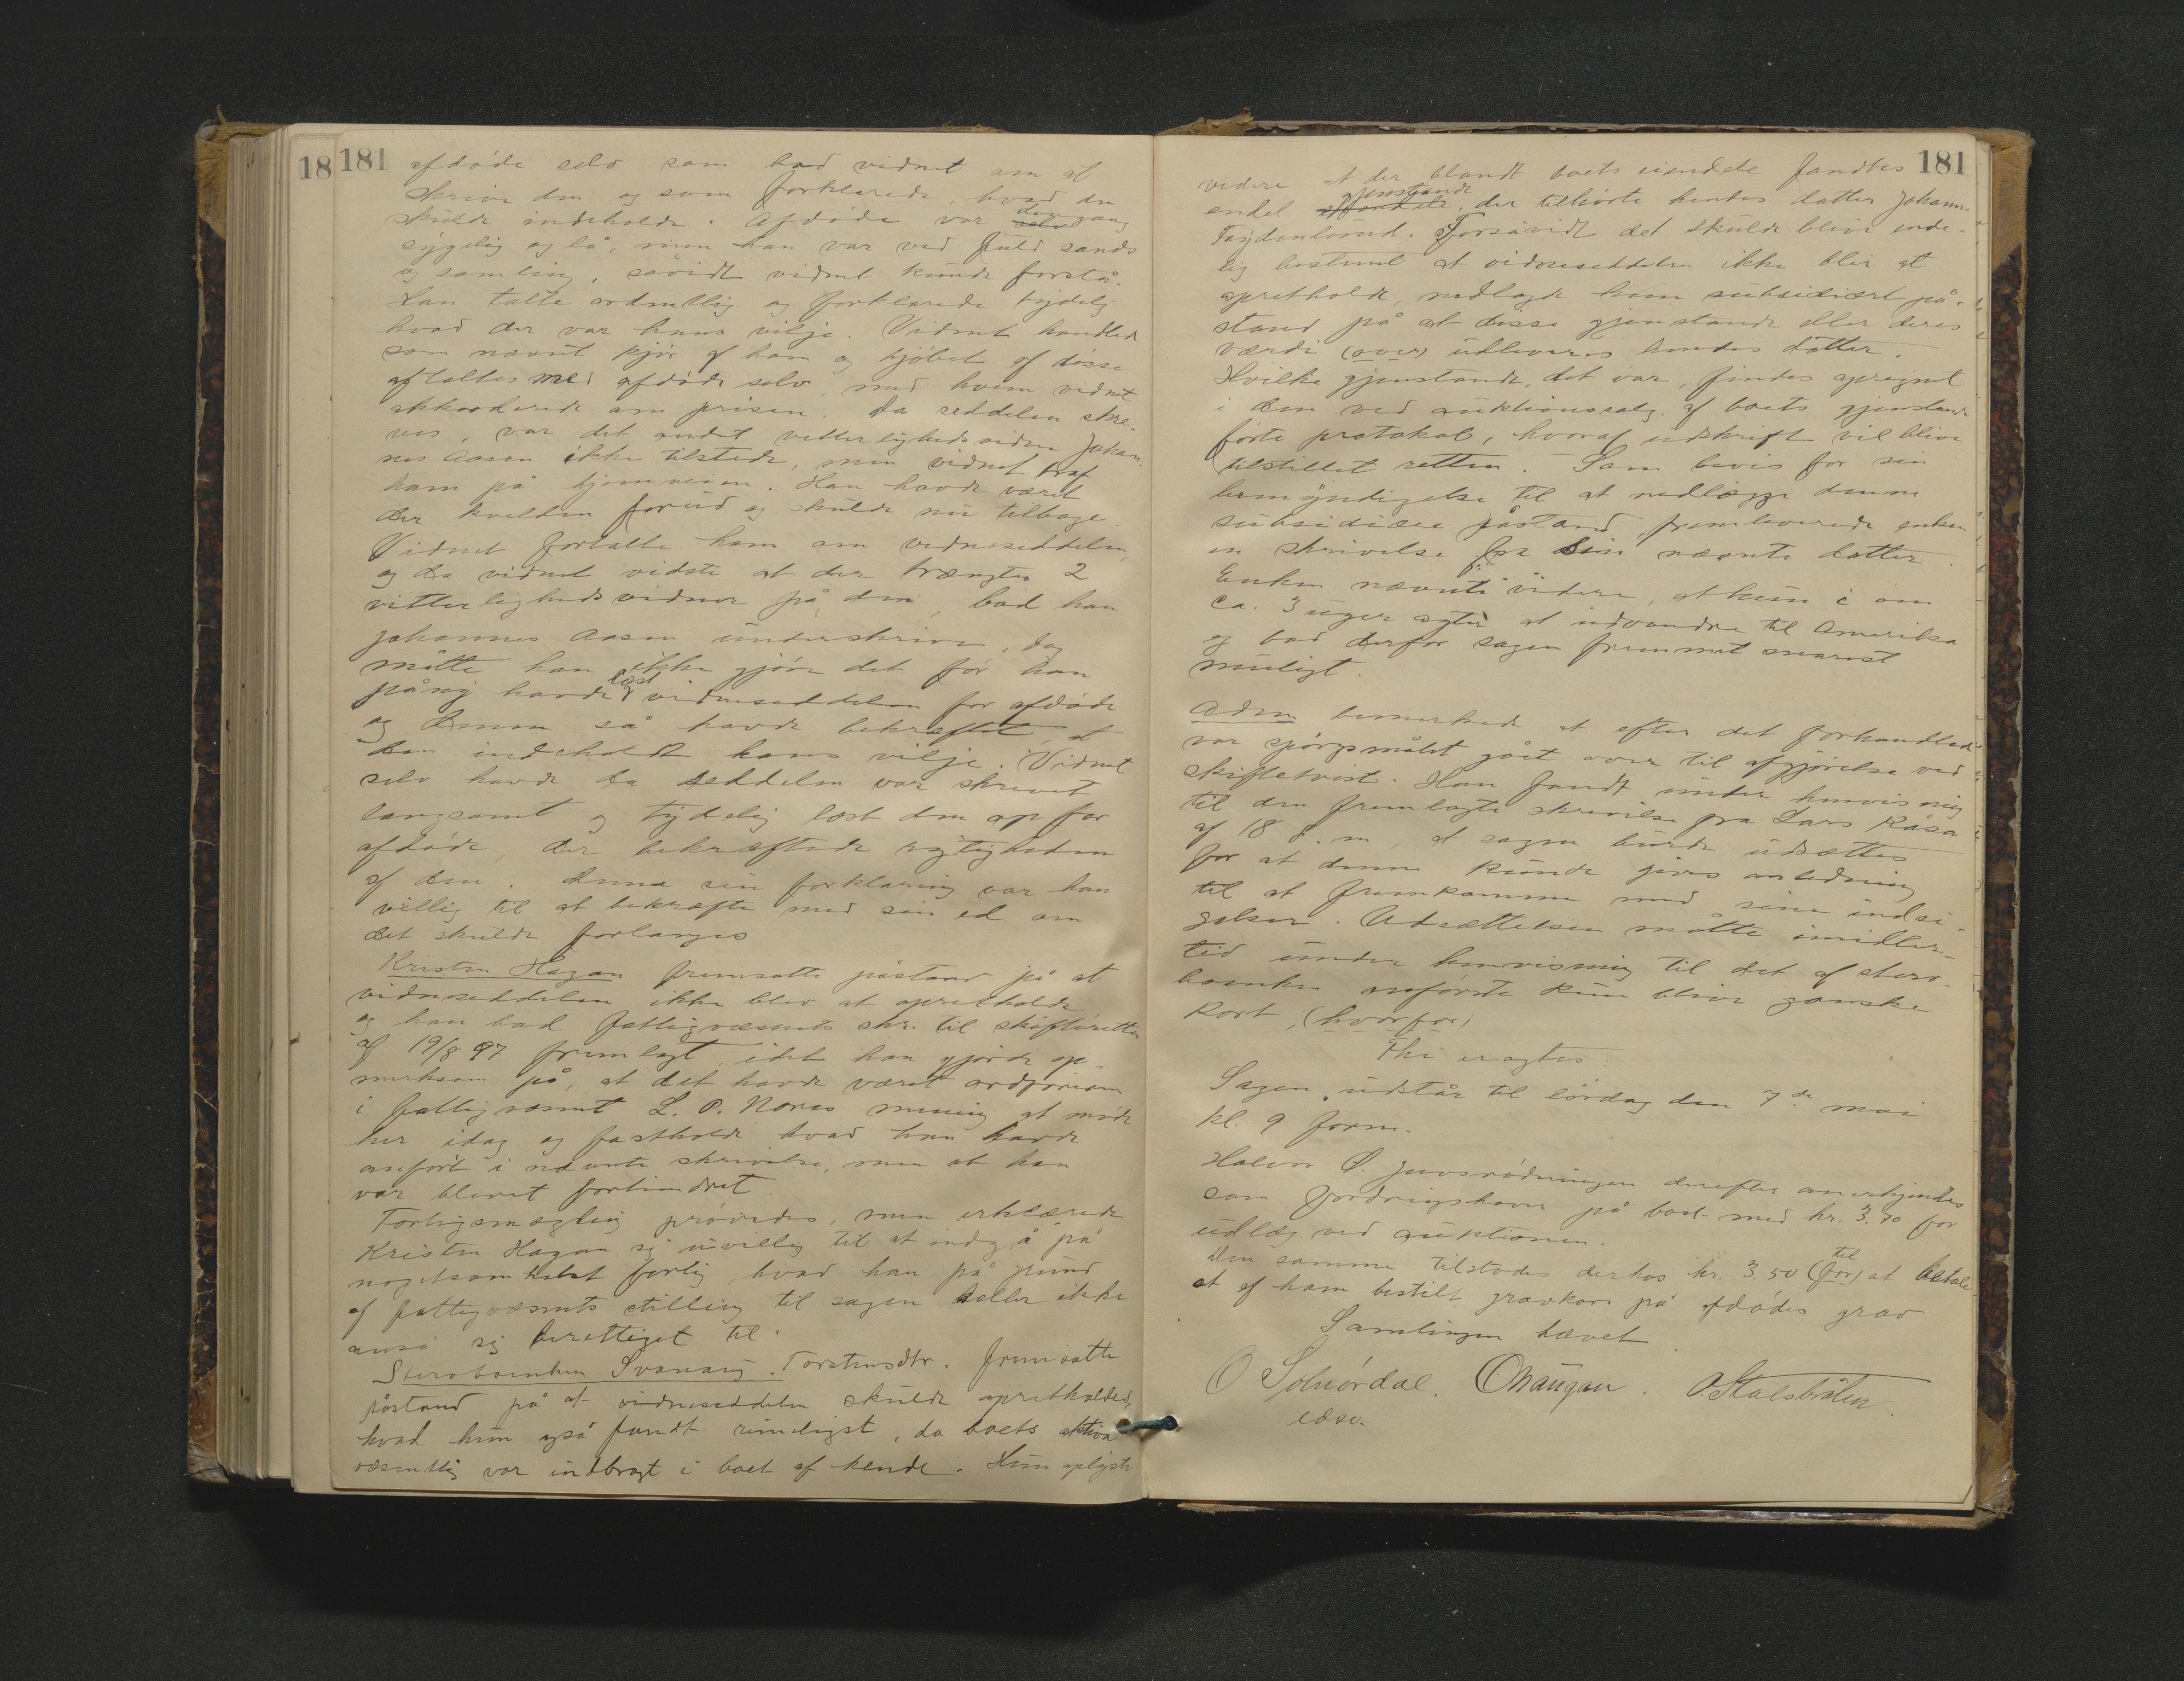 18 181
afdøde selv som bad vidnet om at
skrive den og som forklarede, hvad den
skulde indeholde. Afdøde var dengang
sygelig og lå, men han var ved fuld sands
og samling, såvidt vidnet kunde forstå.
Han talte ordentlig og forklarede tydelig
hvad der var hans vilje. Vidnet handled
som nævnt kjør af ham og kjøbet af disse
aftaltes med afdøde selv, med hvem vidnet
akkorderede om prisen. Da seddelen skre-
ves, var det andet vitterlighedsvidne Johan-
nes Aasen ikke tilstede, men vidnet traf
ham på hjemveien. Han havde været
der kvelden forud og skulde nu tilbage.
Vidnet fortalte ham om vidneseddelen,
og da vidnet vidste at der trængtes 2
vitterlighedsvidner på den, bad han
Johannes Aasen underskrive, dog
måtte han ikke gjøre det før han
påny havde læst vidneseddelen for afdøde
og denne så havde bekræftet, at
den indeholdt hans vilje. Vidnet
selv havde da seddelen var skrevet
langsomt og tydelig læst den op for
afdøde, der bekræftede rigtigheden
af den. Denne sin forklaring var han
villig til at bekræfte med sin ed om
det skulde forlanges
Kristen Hagan fremsatte påstand på at
vidneseddelen ikke blev at opretholde
og han bad fattigvæsnets skr. til skifteretten
af 19/8 97 fremlagt, idet han gjorde op-
merksom på, at det havde været ordføreren
i fattigvæsnet L. O. Nores mening at møde
her idag og fastholde hvad han havde
anført i nævnte skrivelse, men at han
var blevet forhindret
Forligsmægling prøvedes, men erklærede
Kristen Hagan sig uvillig til at indgå på
nogetsomhelst forlig, hvad han på grund
af fattigvæsnets stilling til sagen heller ikke
anså sig berettiget til.
Stervboenken Svanaug Torstensdtr. fremsatte
påstand på at vidneseddelen skulde opretholdes,
hvad hun også fandt rimeligst, da boets aktiva
væsentlig var indbragt i boet af hende. Hun oplyste
181
videre at der blandt boets eiendele fandtes
endel gjenstande, der tilhørte hendes datter Johanne
Frydenlund. Forsåvidt det skulde blive ende-
lig bestemt at vidneseddelen ikke blir at
opretholde, nedlagde hun subsidiært på-
stand på at disse gjenstande eller deres
værdi (over) udleveres hendes datter.
Hvilke gjenstande, det var, findes opregnet
i den ved auktionssalg af boets gjenstande
førte protokol, hvoraf udskrift vil blive
tilstillet retten. Som bevis for sin
bemyndigelse til at nedlægge denne
subsidiære påstand, fremleverede enken
en skrivelse fra sin nævnte datter.
Enken nævnte videre, at hun i om
ca. 3 uger agter at udvandre til Amerika
og bad derfor sagen fremmet snarest
muligt.
Adm. bemerkede at efter det forhandlede
var spørgsmålet gået over til afgjørelse ved
skiftetvist. Han fandt under henvisning
til den fremlagte skrivelse fra Lars Råsa
af 18 d. m, at sagen burde udsættes
for at denne kunde gives anledning
til at fremkomme med sine indsi-
gelser. Udsættelsen måtte imidler-
tid under henvisning til det af sterv-
boenken anførte kun blive ganske
kort, (hvorfor)
Thi eragtes:
Sagen udstår til lørdag den 7de mai
kl. 9 form.
Halvor O. Juvsrødningen derefter anerkjendtes
som fordringshaver på boet med kr. 3.70 for
udlæg ved auktionen.
Den samme tilstodes derhos kr. 3 50 (for) til at betale
et af ham bestilt gravkors på afdødes grav
Samlingen hævet
O Solnørdal. OHaugan. O. Stalsbråten.
edsv.